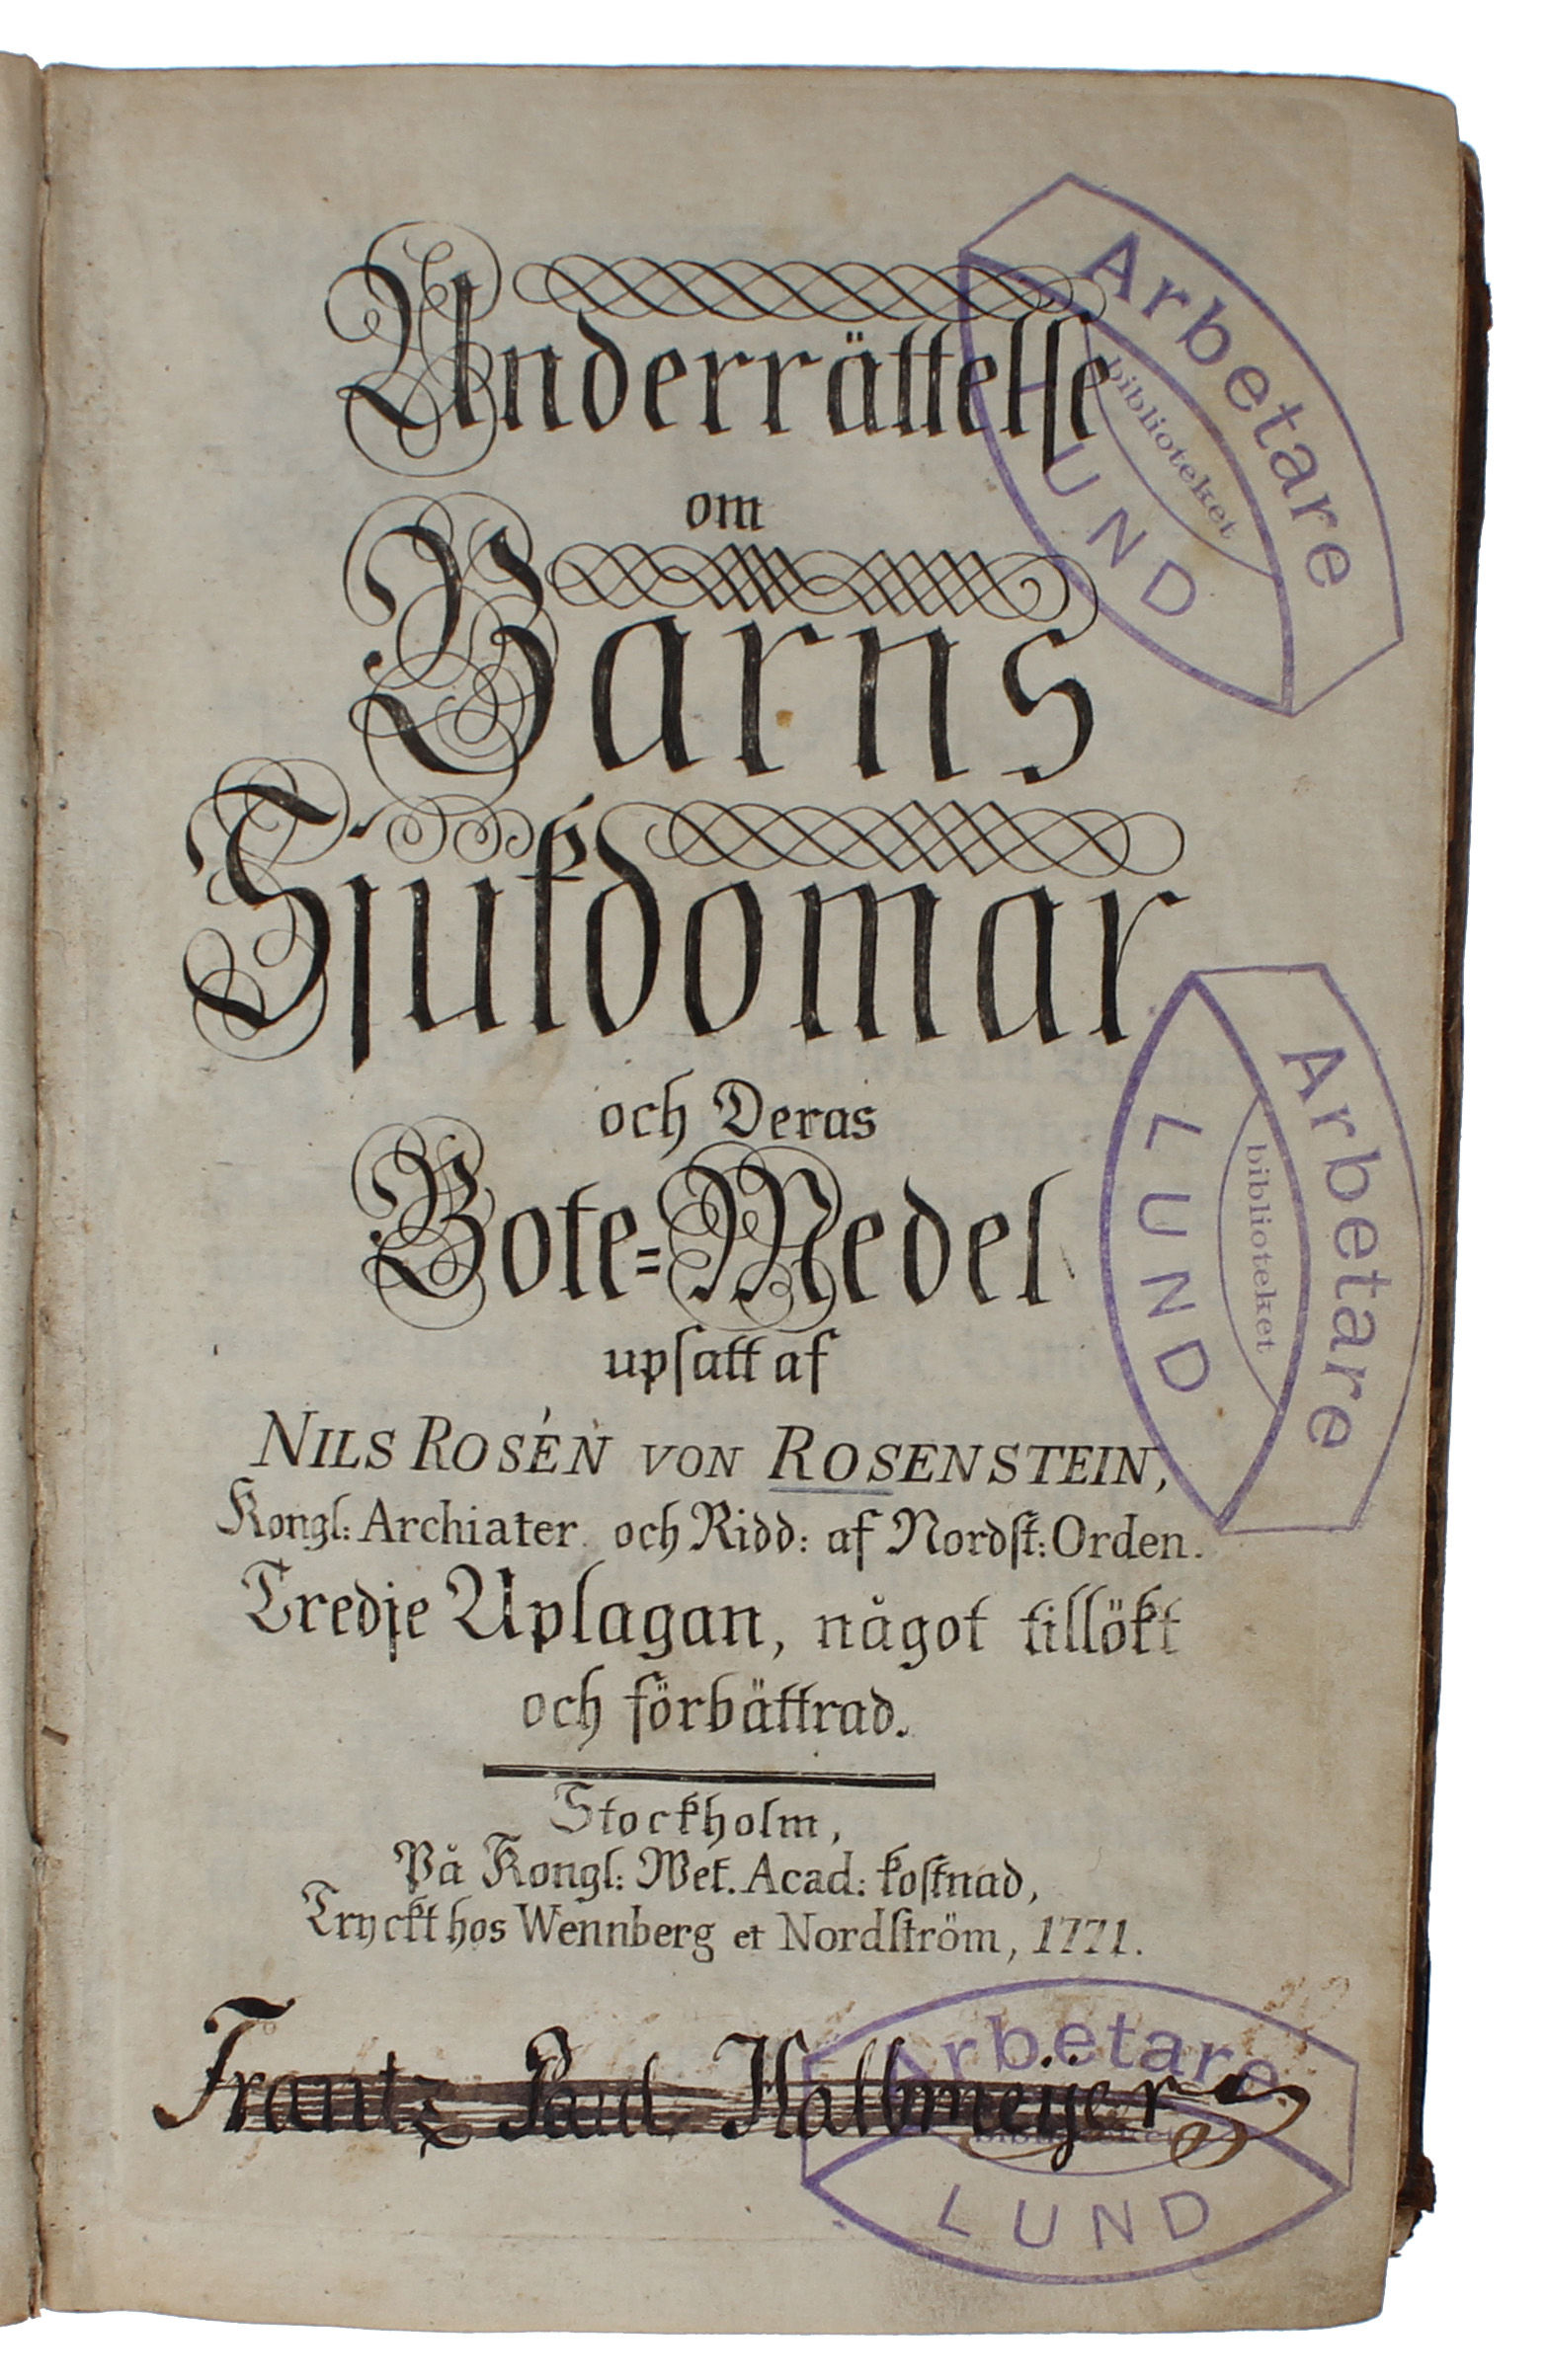 Underrättelse
om
Barns
Sjukdomar
och Deras
Bote=Medel
upsatt af
NILS ROSÉN VON ROSENSTEIN,
Kongl: Archiater och Ridd: af Nordst: Orden.
Tredje Uplagan, något tillökt
och förbättrad.
Stockholm,
På Kongl: Wet. Acad: kostnad,
Tryckt hos Wennberg et Nordström, 1771.
Frantz Paul Hallmeÿer
Arbetare
biblioteket
LUND
Arbetare
biblioteket
LUND
Arbetare
biblioteket
LUND